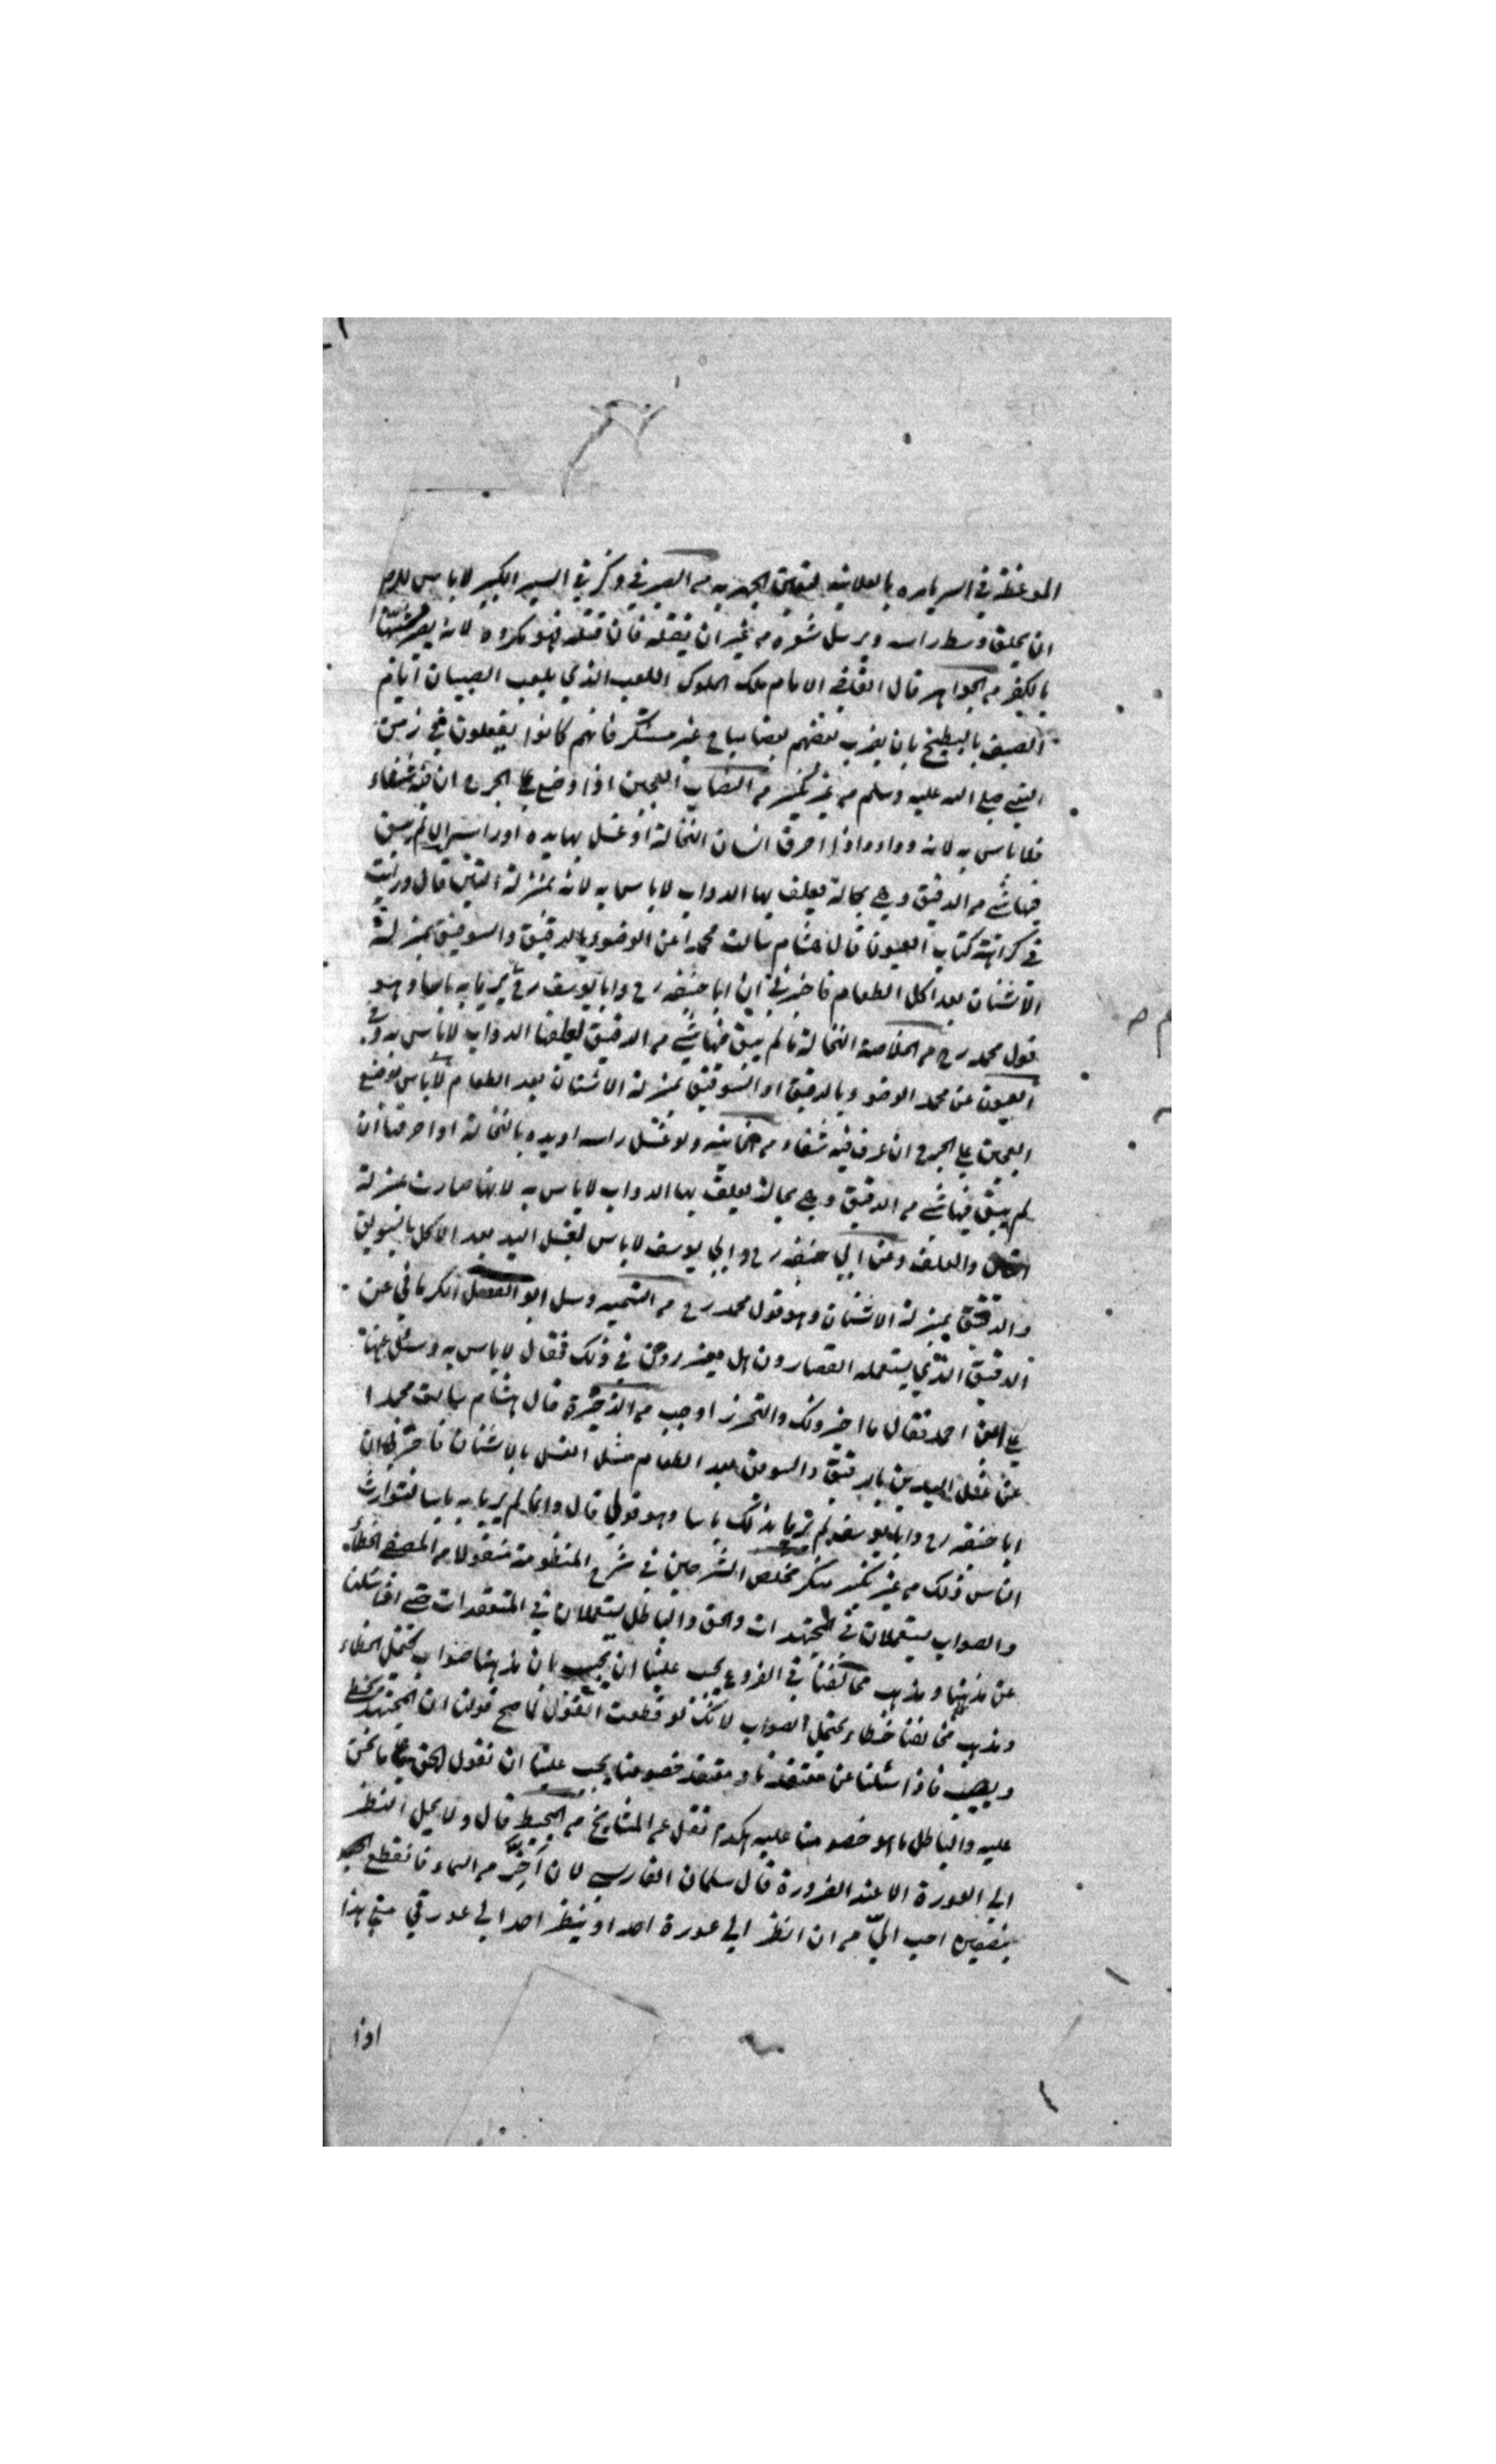 الموعظة في السر يامره بالعلانية من الصيرفي وذكر في السير الكبير لا باس للرجل
ان يحلق وسط راسه ويرسل شعره من غير ان يفتله فان فتله فهو مكروه لانه يصير
من الجواهر قال القاضي الامام ملك الملوك اللعب الذي يلعب الصبيان ايام
الصيف بالبطيخ بان يضرب بعضهم بعضا مباح غير مستنكر فانهم كانوا يفعلون في زمن
النبي صلى الله عليه وسلم من غير نكير من النصاب العجين اذا وضع على الجرح ان فيه شفاء
فلا باس به لانه دواء واذا احرق انسان النخالة او غسل بها يده او راسه ان لم يبق
فيها شي من الدقيق وهي بحالة يعلف بها الدواب لا باس به لانه بمنزلة التبن قال ورايت
في كراهة كتاب العيون قال هشام سالت محمدا عن الوضوء بالدقيق والسويق بمنزلة
الاشنان بعد اكل الطعام فاخبرني ان ابا حنيفة رح وابا يوسف رح لم يريا به باسا وهو
قول محمد رح من الخلاصة النخالة ما لم يبق فيها شي من الدقيق يعلفها الدواب لا باس به وفي
العيون عن محمد الوضوء بالدقيق او السويق بمنزلة الاشنان بعد الطعام لا باس بوضع
العجين على الجرح ان عرف فيه شفاء من الخانية ولو غسل راسه او يده بالنخالة او احرقها ان
لم يبق فيها شي من الدقيق وهي بحالة يعلف بها الدواب لا باس به لانها صارت بمنزلة
التبن والعلف وعن ابي حنيفة رح وابي يوسف لا باس بغسل اليد بعد الاكل بالسويق
والدقيق بمنزلة الاشنان وهو قول محمد رح من التتمية وسئل ابو الفضل الكرماني عن
الدقيق الذي يستعمله القصارون هل يرخص في ذلك فقال لا باس به وسئل عنها
علي بن احمد فقال ما اخر ذلك والتحرز اوجب من الذخيرة قال هشام سالت محمدا
عن غسل اليدين بالدقيق والسويق بعد الطعام مثل الغسل بالاشنان فاخبرني ان
ابا حنيفة رح وابا يوسف لم يريا بذلك باسا وهو قولي قال وانما لم يريا به باسا لتوارث
الناس ذلك من غير نكير منكر مخلص الشرحين في شرح المنظومة منقولا من المصفى الخطاء
والصواب يستعملان في المجتهدات والحق والباطل يستعملان في المعتقدات حتى اذا سئلنا
عن مذهبنا ومذهب مخالفنا في الفروع يجب علينا ان نجيب بان مذهبنا صواب يحتمل الخطاء
ومذهب مخالفنا خطاء يحتمل الصواب لانك لو قطعت القول لما صح قولنا ان المجتهد يخطئ
ويصيب فاذا سئلنا عن معتقدنا ومعتقد خصومنا يجب علينا ان نقول الحق ما نحن
عليه والباطل ما هو خصومنا عليه هكذا نقل عن المشايخ من المحيط قال ولا يحل النظر
الى العورة الا عند الضرورة قال سلمان الفارسي لان اخر من السماء فانقطع
بنصفين احب الي من ان انظر الى عورة احد او ينظر احد الى عورتي هذا
اذا